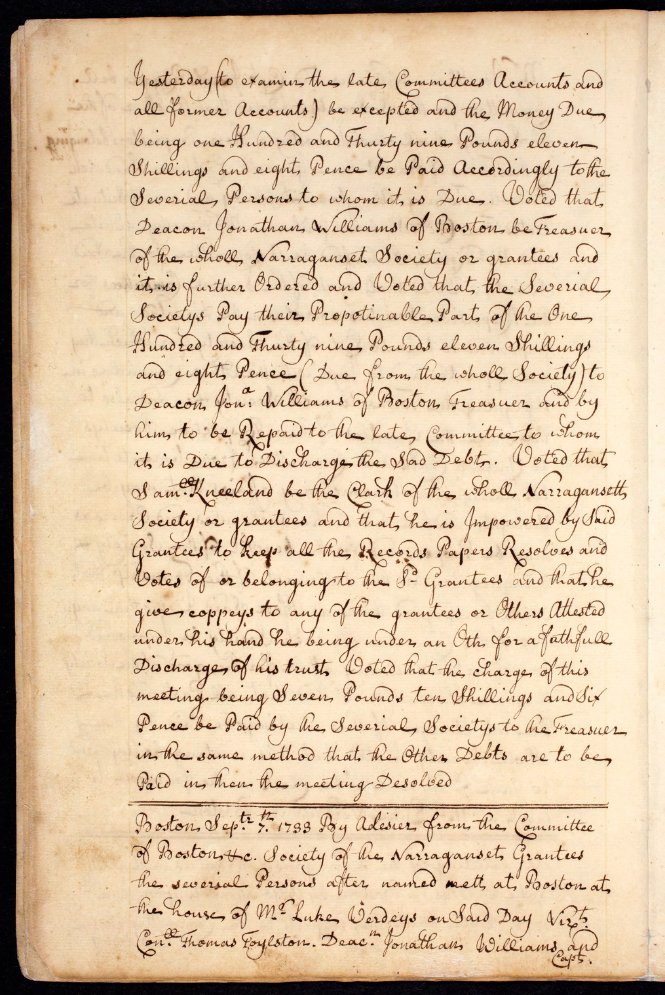 Yesterday (to examin the late Committees Accounts and
all former Accounts) be excepted and the Money Due
being one Hundred and Thurty nine Pounds eleven
Shillings and eight Pence be Paid Accordingly to the
Severial Persons to whom it is Due. Voted that
Deacon Jonathan Williams of Boston be Treasuer
of the wholl Narraganset Society or grantees and
it is further Ordered and Voted that the Severial
Societys Pay their Propotinable Part of the One
Hundred and Thurty nine Pounds eleven Shillings
and eight Pence (Due from the wholl Society) to
Deacon Jonª Williams of Boston Treasuer and by
him to be Repaid to the late Committee to whom
it is Due to Discharge the Sad Debt. Voted that
Samˡˡ Kneeland be the Clark of the wholl Narragansett
Society or grantees and that he is Impowered by Said
Grantees to keep all the Records Papers Resolves and
Votes of or belonging to the Sᵈ Grantees and that he
give coppeys to any of the grantees or Others Attested
under his hand he being under an Oth for a fathfull
Discharge of his trust Voted that the charge of this
meeting being Seven Pounds ten Shillings and Six
Pence be Paid by the Severial Societys to the Treasuer
in the same method that the Other Debts are to be
Paid in then the meeting Desolved
Boston Sepᵗʳ 7ᵗʰ 1733 By Adesier from the Committee
of Boston &c. Society of the Narraganset Grantees
the severial Persons after named mett at Boston at
the house of Mʳ Luke Verdeys on Said Day Vizᵗ.
Conˡˡ Thomas Foylston. Deacⁿ Jonathan Williams and
Capᵗ.